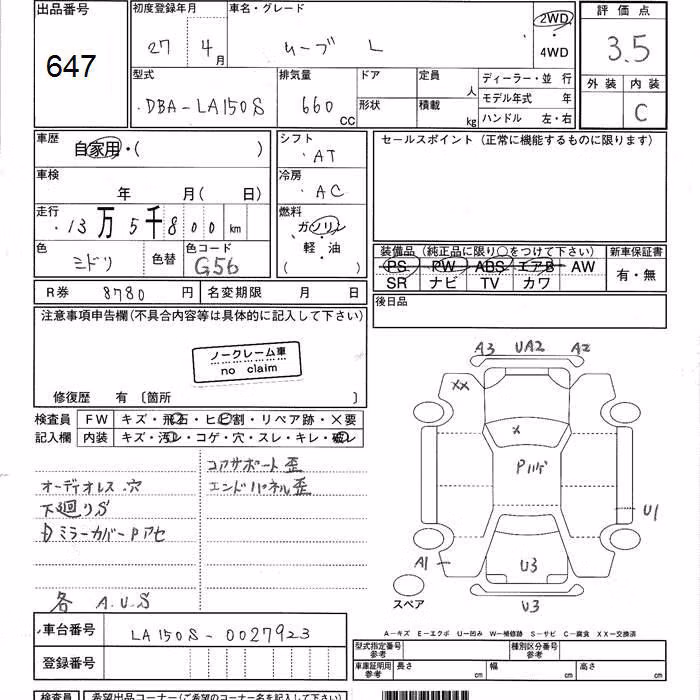 出品番号
647
初度登録年月
27 年 4 月
車名・グレード
ムーブ L
2WD
・
4WD
評価点
3.5
外装 内装
C
型式
DBA-LA150S
排気量
660 CC
ドア
形状
定員 人
積載 kg
ディーラー・並 行
モデル年式 年
ハンドル 左・右
車歴
自家用・( )
車検
年 月(日)
走行
13万5千800km
色
ミドリ
色替
色コード
G56
シフト
AT
冷房
AC
燃料
ガソリン
・
軽・油
( )
セールスポイント(正常に機能するものに限ります)
装備品(純正品に限り○をつけて下さい)
PS PW ABS エアB AW
SR ナビ TV カワ
新車保証書
有・無
R券 8780 円
名変期限 月 日
後日品
注意事項申告欄(不具合内容等は具体的に記入して下さい)
ノークレーム車
no claim
修復歴 有〔箇所 〕
検査員
記入欄
FW キズ・飛石・ヒビ割・リペア跡・×要
内装 キズ・汚レ・コゲ・穴・スレ・キレ・破レ
コアサポート歪
オーディオレス・穴
エンドパネル歪
下廻りS
ミラーカバーPアセ
各 A.U.S
A3 UA2 A2
XX
×
Pハゲ
U1
A1
U3
U3
スペア
車台番号
LA150S-0027923
登録番号
A-キズ E-エクボ U-凹み W-補修跡 S-サビ C-腐食 XX-交換済
型式指定番号
参考
種別区分番号
参考
車庫証明用
参考
長さ cm 幅 cm 高さ cm
検査員
希望出品コーナー(ご希望のコーナー名を記入下さい)